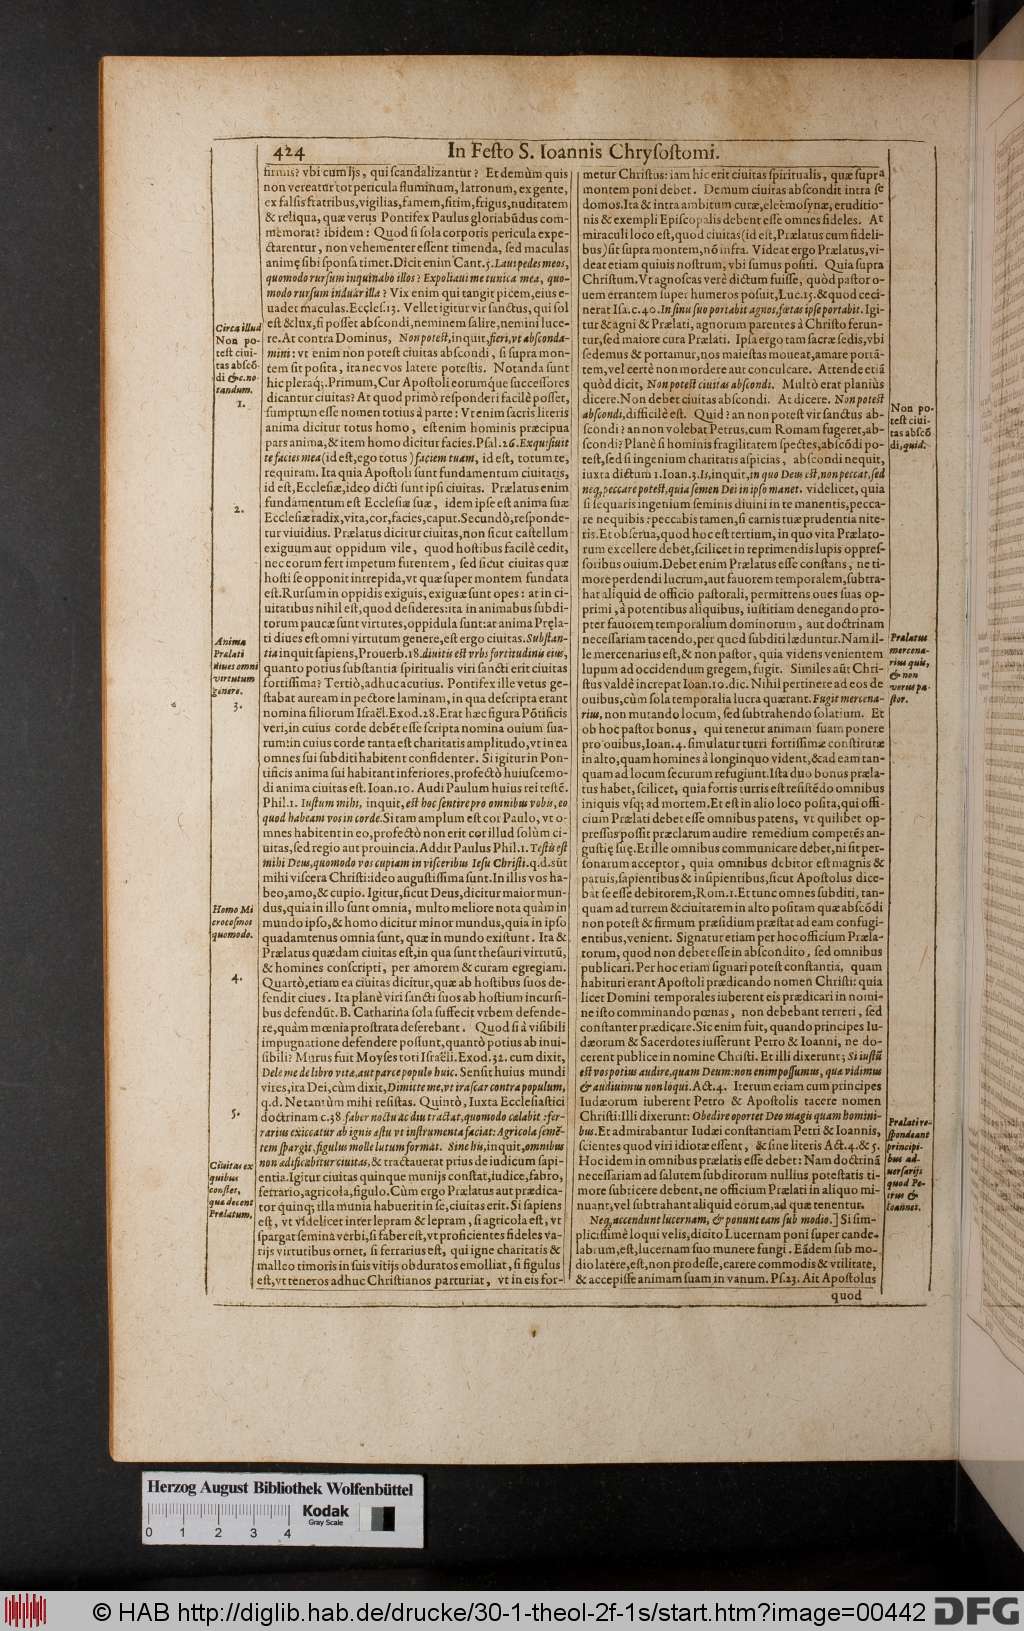 424
In Festo S. Ioannis Chrysostomi.
firmis? vbi cum Ijs, qui scandalizantur? Et demùm quis
non vereatur tot pericula fluminum, latronum, ex gente,
ex falsis fratribus, vigilias, famem, sitim, frigus, nuditatem
& reliqua, quæ verus Pontifex Paulus gloriabūdus com-
memorat? ibidem: Quod si sola corporis pericula expe-
ctarentur, non vehementer essent timenda, sed maculas
animę sibi sponsa timet. Dicit enim Cant. 5. Laui pedes meos,
quomodo rursum inquinabo illos? Expoliaui me tunica mea, quo-
modo rursum induar illa? Vix enim qui tangit picem, eius e-
uadet maculas. Eccles. 13. Vellet igitur vir sanctus, qui sol
est & lux, si posset abscondi, neminem salire, nemini luce-
re. At contra Dominus, Non potest, inquit, fieri, vt absconda-
mini: vt enim non potest ciuitas abscondi, si supra mon-
tem sit posita, ita nec vos latere potestis. Notanda sunt
hic pleraq;. Primum, Cur Apostoli eorumque successores
dicantur ciuitas? At quod primò responderi facilè posset,
sumptum esse nomen totius à parte: Vt enim sacris literis
anima dicitur totus homo, est enim hominis præcipua
pars anima, & item homo dicitur facies. Psal. 26. Exquisiuit
te facies mea (id est, ego totus) faciem tuam, id est, totum te,
requiram. Ita quia Apostoli sunt fundamentum ciuitatis,
id est, Ecclesiæ, ideo dicti sunt ipsi ciuitas. Prælatus enim
fundamentum est Ecclesiæ suæ, idem ipse est anima suæ
Ecclesiæ radix, vita, cor, facies, caput. Secundò, responde-
tur viuidius. Prælatus dicitur ciuitas, non sicut castellum
exiguum aut oppidum vile, quod hostibus facilè cedit,
nec eorum fert impetum furentem, sed sicut ciuitas quæ
hosti se opponit intrepida, vt quæ super montem fundata
est. Rursum in oppidis exiguis, exiguæ sunt opes: at in ci-
uitatibus nihil est, quod desideres: ita in animabus subdi-
torum paucæ sunt virtutes, oppidula sunt: at anima Pręla-
ti diues est omni virtutum genere, est ergo ciuitas. Substan-
tia inquit sapiens, Prouerb. 18. diuitis est vrbs fortitudinis eius,
quanto potius substantia spiritualis viri sancti erit ciuitas
fortissima? Tertiò, adhuc acutius. Pontifex ille vetus ge-
stabat auream in pectore laminam, in qua descripta erant
nomina filiorum Israël. Exod. 28. Erat hæc figura Pōtificis
veri, in cuius corde debēt esse scripta nomina ouium sua-
rum: in cuius corde tanta est charitatis amplitudo, vt in ea
omnes sui subditi habitent confidenter. Si igitur in Pon-
tificis anima sui habitant inferiores, profectò huiuscemo-
di anima ciuitas est. Ioan. 10. Audi Paulum huius rei testē.
Phil. 1. Iustum mihi, inquit, est hoc sentire pro omnibus vobis, eo
quod habeam vos in corde. Si tam amplum est cor Paulo, vt o-
mnes habitent in eo, profectò non erit cor illud solùm ci-
uitas, sed regio aut prouincia. Addit Paulus Phil. 1. Testis est
mihi Deus, quomodo vos cupiam in visceribus Iesu Christi. q.d. sūt
mihi viscera Christi: ideo augustissima sunt. In illis vos ha-
beo, amo, & cupio. Igitur, sicut Deus, dicitur maior mun-
dus, quia in illo sunt omnia, multo meliore nota quàm in
mundo ipso, & homo dicitur minor mundus, quia in ipso
quadamtenus omnia sunt, quæ in mundo existunt. Ita &
Prælatus quædam ciuitas est, in qua sunt thesauri virtutū,
& homines conscripti, per amorem & curam egregiam.
Quartò, etiam ea ciuitas dicitur, quæ ab hostibus suos de-
fendit ciues. Ita planè viri sancti suos ab hostium incursi-
bus defendūt. B. Catharina sola suffecit vrbem defende-
re, quàm mœnia prostrata deserebant. Quod si à visibili
impugnatione defendere possunt, quantò potius ab inui-
sibili? Murus fuit Moyses toti Israëli. Exod. 32. cum dixit,
Dele me de libro vitæ, aut parce populo huic. Sensit huius mundi
vires, ira Dei, cùm dixit, Dimitte me, vt irascar contra populum,
q.d. Ne tantùm mihi resistas. Quintò, Iuxta Ecclesiastici
doctrinam c. 38. faber noctu ac diu tractat, quomodo cælabit: fer-
rarius exiccatur ab ignis æstu vt instrumenta faciat: Agricola semē-
tem spargit, figulus molle lutum format. Sine his, inquit, omnibus
non ædificabitur ciuitas, & tractauerat prius de iudicum sapi-
entia. Igitur ciuitas quinque munijs constat, iudice, fabro,
ferrario, agricola, figulo. Cùm ergo Prælatus aut prædica-
tor quinq; illa munia habuerit in se, ciuitas erit. Si sapiens
est, vt videlicet inter lepram & lepram, si agricola est, vt
spargat semina verbi, si faber est, vt proficientes fideles va-
rijs virtutibus ornet, si ferrarius est, qui igne charitatis &
malleo timoris in suis vitijs obduratos emolliat, si figulus
est, vt teneros adhuc Christianos parturiat, vt in eis for-
Circa illud
Non po-
test ciui-
tas abscō-
di &c. no-
tandum.
1.
2.
Anima
Prælati
diues omni
virtutum
genere.
3.
Homo Mi
crocosmos
quomodo.
4.
5.
Ciuitas ex
quibus
constet,
quæ decent
Prælatum.
metur Christus: iam hic erit ciuitas spiritualis, quæ supra
montem poni debet. Demum ciuitas abscondit intra se
domos. Ita & intra ambitum curæ, eleëmosynæ, eruditio-
nis & exempli Episcopalis debent esse omnes fideles. At
miraculi loco est, quod ciuitas (id est, Prælatus cum fideli-
bus) sit supra montem, nō infra. Videat ergo Prælatus, vi-
deat etiam quiuis nostrum, vbi sumus positi. Quia supra
Christum. Vt agnoscas verè dictum fuisse, quòd pastor o-
uem errantem super humeros posuit, Luc. 15. & quod ceci-
nerat Isa. c. 40. In sinu suo portabit agnos, fœtas ipse portabit. Igi-
tur & agni & Prælati, agnorum parentes à Christo ferun-
tur, sed maiore cura Prælati. Ipsa ergo tam sacræ sedis, vbi
sedemus & portamur, nos maiestas moueat, amare portā-
tem, vel certè non mordere aut conculcare. Attende etiā
quòd dicit, Non potest ciuitas abscondi. Multò erat planiùs
dicere. Non debet ciuitas abscondi. At dicere. Non potest
abscondi, difficilè est. Quid? an non potest vir sanctus ab-
scondi? an non volebat Petrus, cum Romam fugeret, ab-
scondi? Planè si hominis fragilitatem spectes, abscōdi po-
test, sed si ingenium charitatis aspicias, abscondi nequit,
iuxta dictum 1. Ioan. 3. Is, inquit, in quo Deus est, non peccat, sed
neq, peccare potest, quia semen Dei in ipso manet. videlicet, quia
si sequaris ingenium seminis diuini in te manentis, pecca-
re nequibis: peccabis tamen, si carnis tuæ prudentia nite-
ris. Et obserua, quod hoc est tertium, in quo vita Prælato-
rum excellere debēt, scilicet in reprimendis lupis oppres-
soribus ouium. Debet enim Prælatus esse constans, ne ti-
more perdendi lucrum, aut fauorem temporalem, subtra-
hat aliquid de officio pastorali, permittens oues suas op-
primi, à potentibus aliquibus, iustitiam denegando pro-
pter fauorem temporalium dominorum, aut doctrinam
necessariam tacendo, per quod subditi læduntur. Nam il-
le mercenarius est, & non pastor, quia videns venientem
lupum ad occidendum gregem, fugit. Similes aūt Chri-
stus valdè increpat Ioan. 10. dic. Nihil pertinere ad eos de
ouibus, cùm sola temporalia lucra quærant. Fugit mercena-
rius, non mutando locum, sed subtrahendo solatium. Et
ob hoc pastor bonus, qui tenetur animam suam ponere
pro ouibus, Ioan. 4. simulatur turri fortissimæ constitutæ
in alto, quam homines à longinquo vident, & ad eam tan-
quam ad locum securum refugiunt. Ista duo bonus præla-
tus habet, scilicet, quia fortis turris est resistēdo omnibus
iniquis vsq; ad mortem. Et est in alio loco posita, qui offi-
cium Prælati debet esse omnibus patens, vt quilibet op-
pressus possit præclarum audire remedium competēs an-
gustię suę. Et ille omnibus communicare debet, ni sit per-
sonarum acceptor, quia omnibus debitor est magnis &
paruis, sapientibus & insipientibus, sicut Apostolus dice-
bat se esse debitorem, Rom. 1. Et tunc omnes subditi, tan-
quam ad turrem & ciuitatem in alto positam quæ abscōdi
non potest & firmum præsidium præstat ad eam confugi-
entibus, venient. Signatur etiam per hoc officium Præla-
torum, quod non debet esse in abscondito, sed omnibus
publicari. Per hoc etiam signari potest constantia, quam
habituri erant Apostoli prædicando nomen Christi: quia
licet Domini temporales iuberent eis prædicari in nomi-
ne isto comminando pœnas, non debebant terreri, sed
constanter prædicare. Sic enim fuit, quando principes Iu-
dæorum & Sacerdotes iusserunt Petro & Ioanni, ne do-
cerent publice in nomine Christi. Et illi dixerunt; Si iustū
est vos potius audire, quam Deum: non enim possumus, quæ vidimus
& audiuimus non loqui. Act. 4. Iterum etiam cum principes
Iudæorum iuberent Petro & Apostolis tacere nomen
Christi: Illi dixerunt: Obedire oportet Deo magis quam homini-
bus. Et admirabantur Iudæi constantiam Petri & Ioannis,
scientes quod viri idiotæ essent, & sine literis Act. 4. & 5.
Hoc idem in omnibus prælatis esse debet: Nam doctrinā
necessariam ad salutem subditorum nullius potestatis ti-
more subticere debent, ne officium Prælati in aliquo mi-
nuant, vel subtrahant aliquid eorum, ad quæ tenentur.
Neq, accendunt lucernam, & ponunt eam sub modio.] Si sim-
plicissimè loqui velis, dicito Lucernam poni super cande-
labrum, est, lucernam suo munere fungi. Eādem sub mo-
dio latere, est, non prodesse, carere commodis & vtilitate,
& accepisse animam suam in vanum. Ps. 23. Ait Apostolus
quod
Non po-
test ciui-
tas abscō
di, quid.
Prælatus
mercena-
rius quis,
& non
verus pa-
stor.
Prælati re-
spondeant
principi-
bus ad-
uersarijs
quod Pe-
trus &
Ioannes.
Herzog August Bibliothek Wolfenbüttel
0 1 2 3 4
Kodak
Gray Scale
© HAB http://diglib.hab.de/drucke/30-1-theol-2f-1s/start.htm?image=00442
DFG